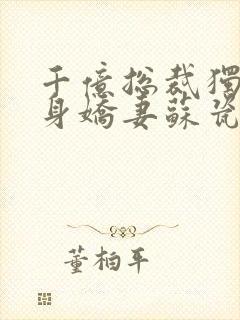 千億總裁獨
身嬌妻蘇瓷
董柏平